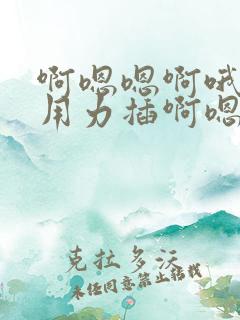 啊嗯嗯啊哦
用力插啊嗯
克拉多沃
未经同意禁止转载